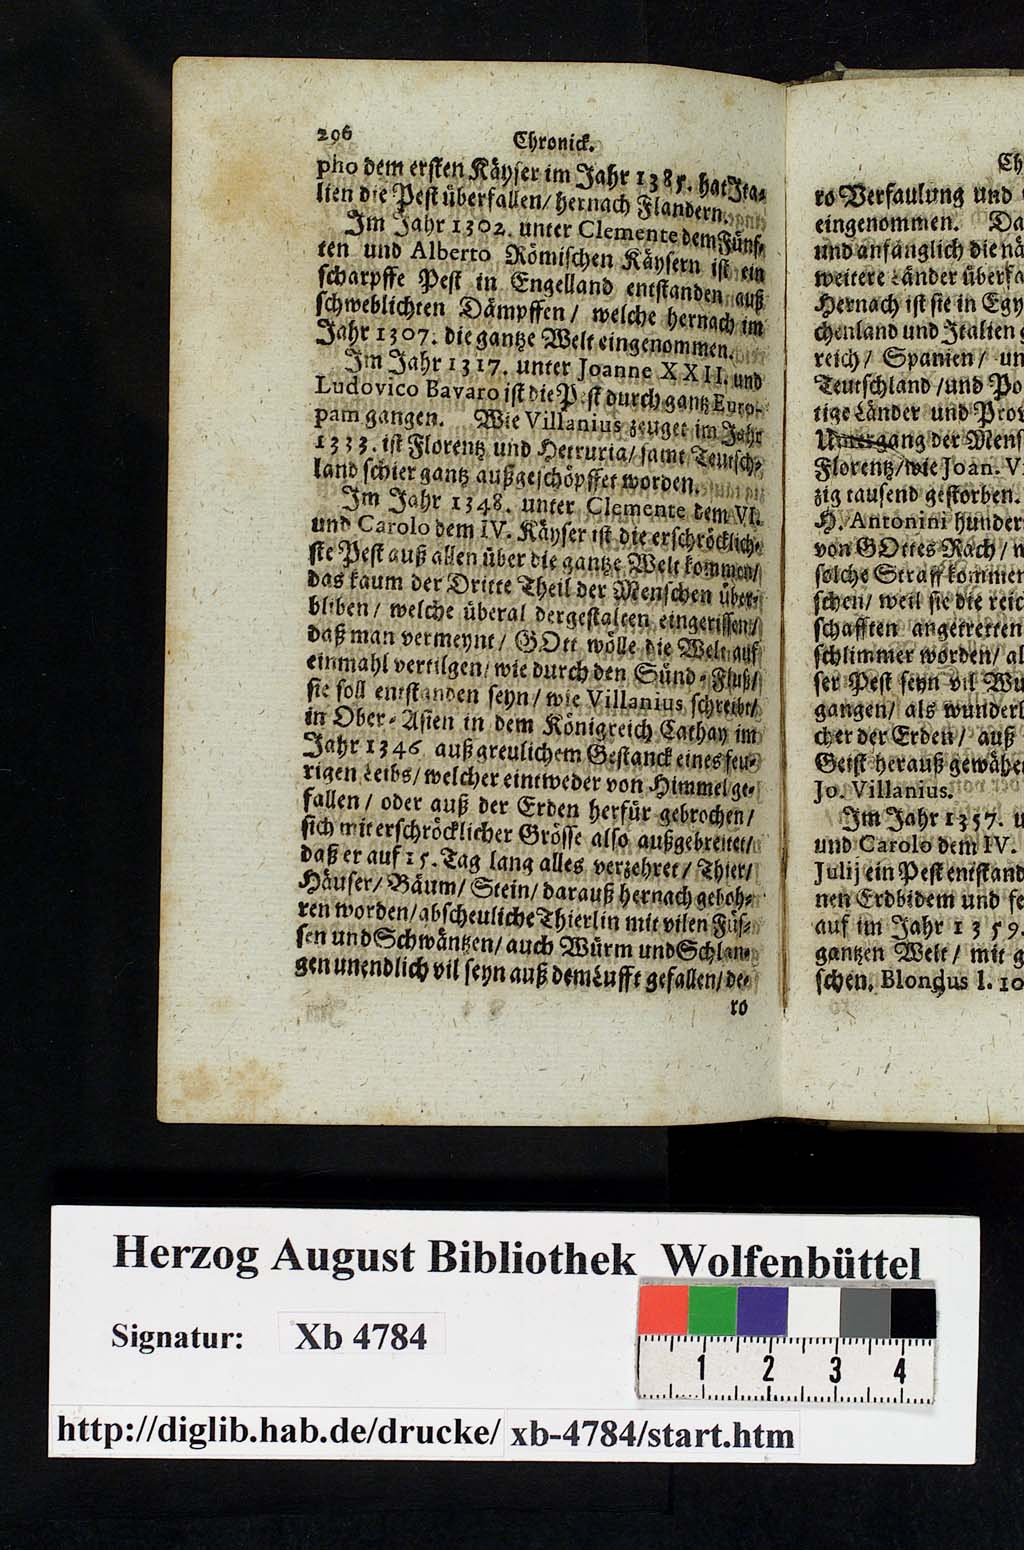 296
Chronick.
pho dem ersten Käyser im Jahr 1385. hat Ita-
lien die Pest überfallen/ hernach Flandern.
Im Jahr 1302. unter Clemente dem Fünf-
ten und Alberto Römischen Käysern ist ein
scharpffe Pest in Engelland entstanden auß
schweblichten Dämpffen/ welche hernach im
Jahr 1307. die gantze Welt eingenommen.
Im Jahr 1317. unter Joanne XXII. und
Ludovico Bavaro ist die Pest durch gantz Euro-
pam gangen. Wie Villanius zeuget im Jahr
1333. ist Florentz und Hetruria/ samt Teutsch-
land schier gantz außgeschöpffet worden.
Im Jahr 1348. unter Clemente dem VI.
und Carolo dem IV. Käyser ist die erschröcklich-
ste Pest auß allen über die gantze Welt kommen/
das kaum der Dritte Theil der Menschen über-
bliben/ welche überal dergestalten eingerissen/
daß man vermeynt/ GOtt wölle die Welt auf
einmahl vertilgen/ wie durch den Sünd-Fluß/
sie soll entstanden seyn/ wie Villanius schreibt/
in Ober-Asien in dem Königreich Cathay im
Jahr 1346 auß greulichem Gestanck eines feu-
rigen Leibs/ welcher eintweder von Himmel ge-
fallen/ oder auß der Erden herfür gebrochen/
sich mit erschröcklicher Grösse also außgebreitet/
daß er auf 15. Tag lang alles verzehret/ Thier/
Häuser/ Bäum/ Stein/ darauß hernach geboh-
ren worden/ abscheuliche Thierlin mit vilen Füs-
sen und Schwäntzen/ auch Würm und Schlan-
gen unendlich vil seyn auß dem Lufft gefallen/ de-
ro
Ch
ro Verfaulung und
eingenommen. Da
und anfänglich die nä
weitere Länder überfa
Hernach ist sie in Egy
chenland und Italien
reich/ Spanien/ un
Teutschland/ und Po
tige Länder und Prov
Untergang der Mens
Florentz/ wie Joan. Vi
zig tausend gestorben.
H. Antonini hunder
von GOttes Rach/
solche Straff kommen
schen/ weil sie die reic
schafften angetretten
schlimmer worden/ al
ser Pest seyn vil Wu
gangen/ als wunderl
cher der Erden/ auß
Geist herauß gewähe
Jo. Villanius.
Im Jahr 1357. u
und Carolo dem IV.
Julij ein Pest entstand
nen Erdbidem und fe
auf im Jahr 1359.
gantzen Welt/ mit g
schen. Blondus l. 10
Herzog August Bibliothek Wolfenbüttel
Signatur: Xb 4784
1 2 3 4
http://diglib.hab.de/drucke/ xb-4784/start.htm